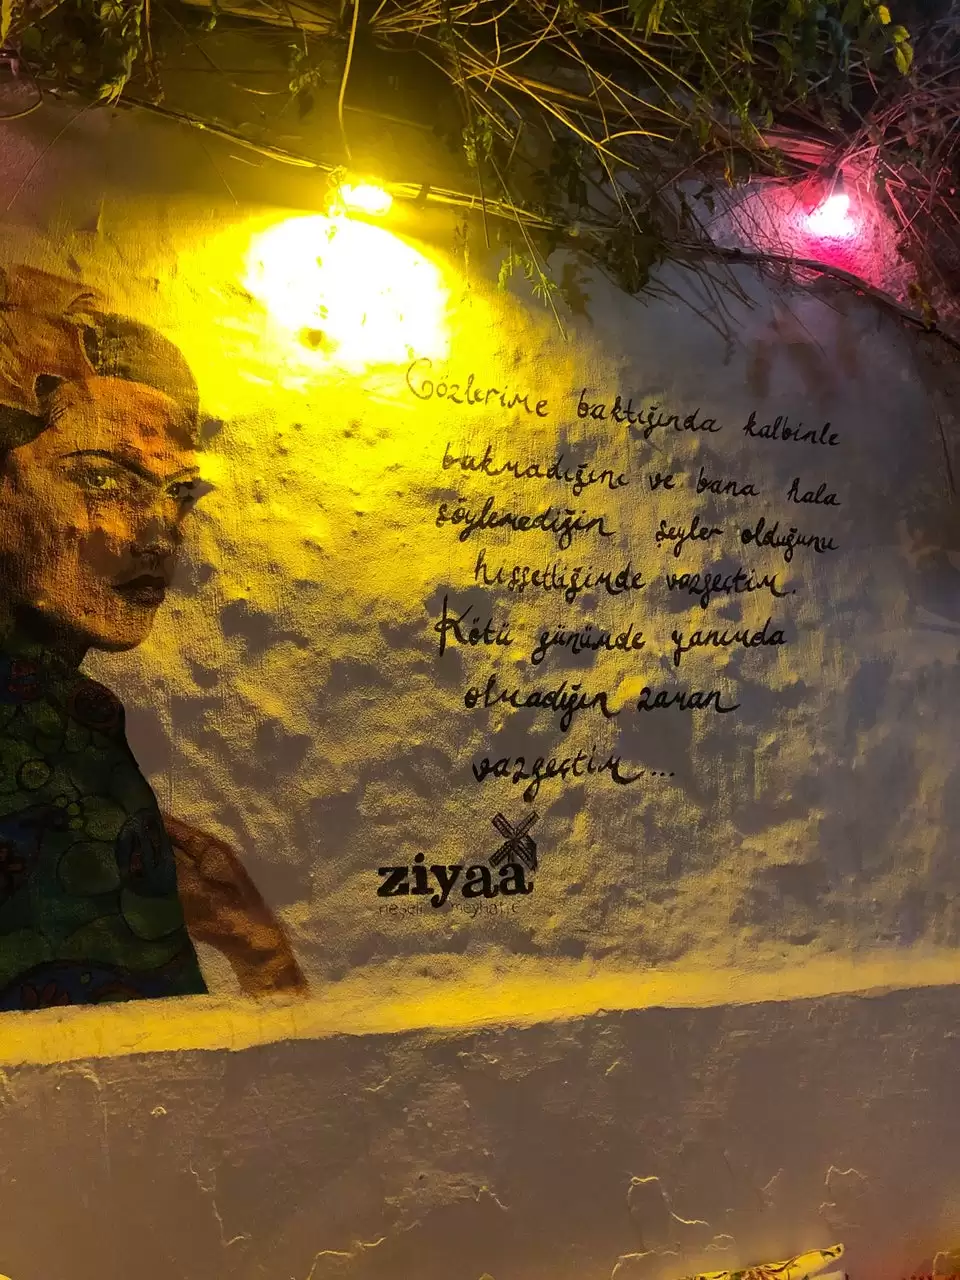 Gözlerime baktığında kalbinle
bakmadığını ve bana hala
söylemediğin şeyler olduğunu
hissettiğimde vazgeçtim.
Kötü günümde yanımda
olmadığın zaman
vazgeçtim...
ziyaa
neşeli meyhane